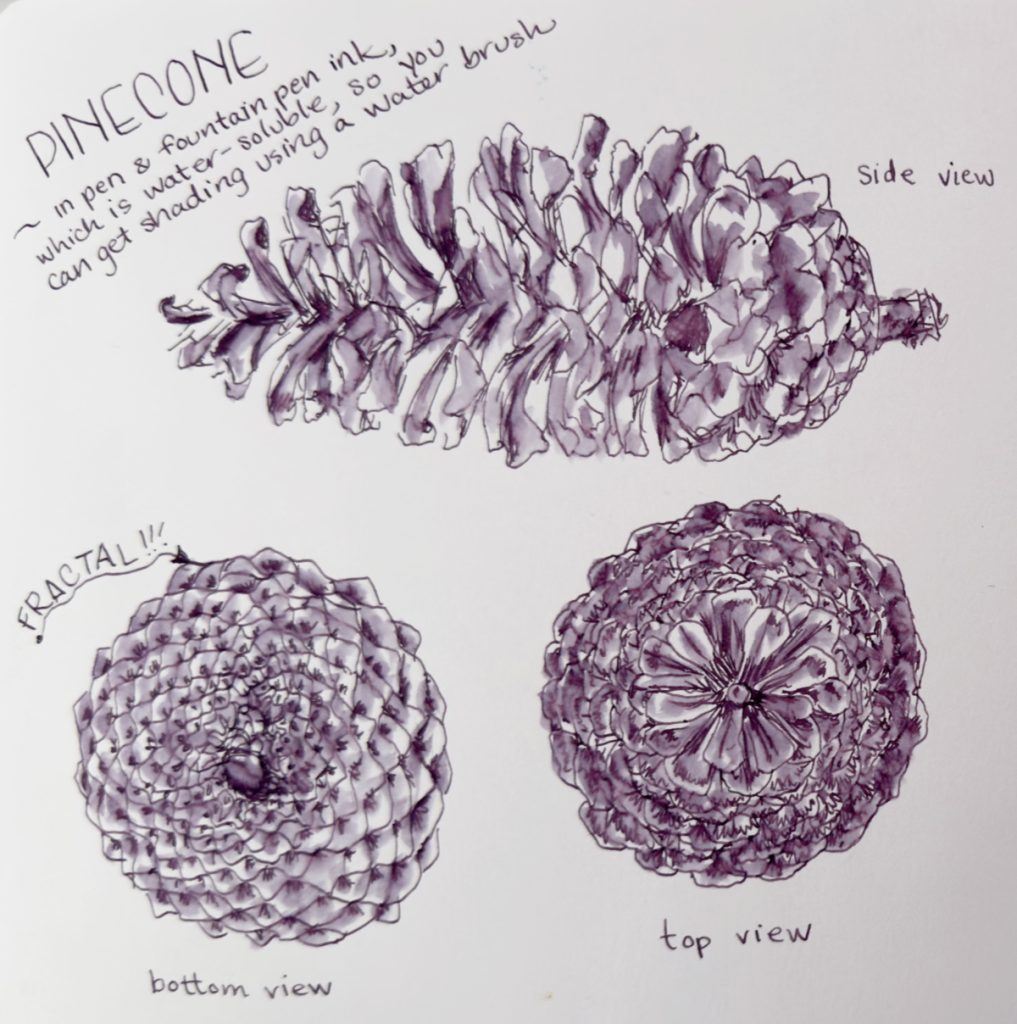 PINECONE
~ in pen & fountain pen ink,
which is water-soluble, so you
can get shading using a water brush
side view
FRACTAL!!!
bottom view
top view